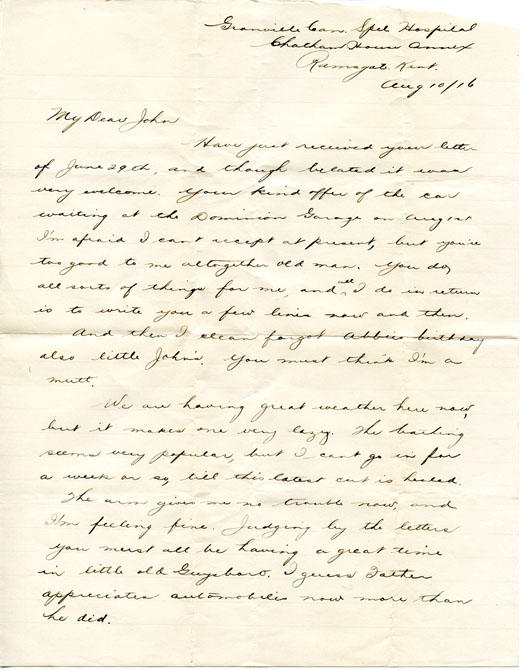 Granville Can. Spcl Hospital
Chatham House Annex
Ramsgate. Kent.
Aug 10/16
My Dear John
Have just received your letter
of June 29th, and though belated it was
very welcome. Your kind offer of the car
waiting at the Dominion Garage on Aug 1st
I'm afraid I can't accept at present, but you're
too good to me altogether old man. You do,
all sorts of things for me, and all I do in return
is to write you a few lines now and then.
And then I clean forgot Abbie's birthday
also little John's. You must think I'm a
mutt.
We are having great weather here now,
but it makes one very lazy. The bathing
seems very popular, but I can't go in for
a week or so, till this latest cut is healed.
The arm gives me no trouble now, and
I'm feeling fine. Judging by the letters
you must all be having a great time
in little old Guysboro. I guess Father
appreciates automobiles now more than
he did.